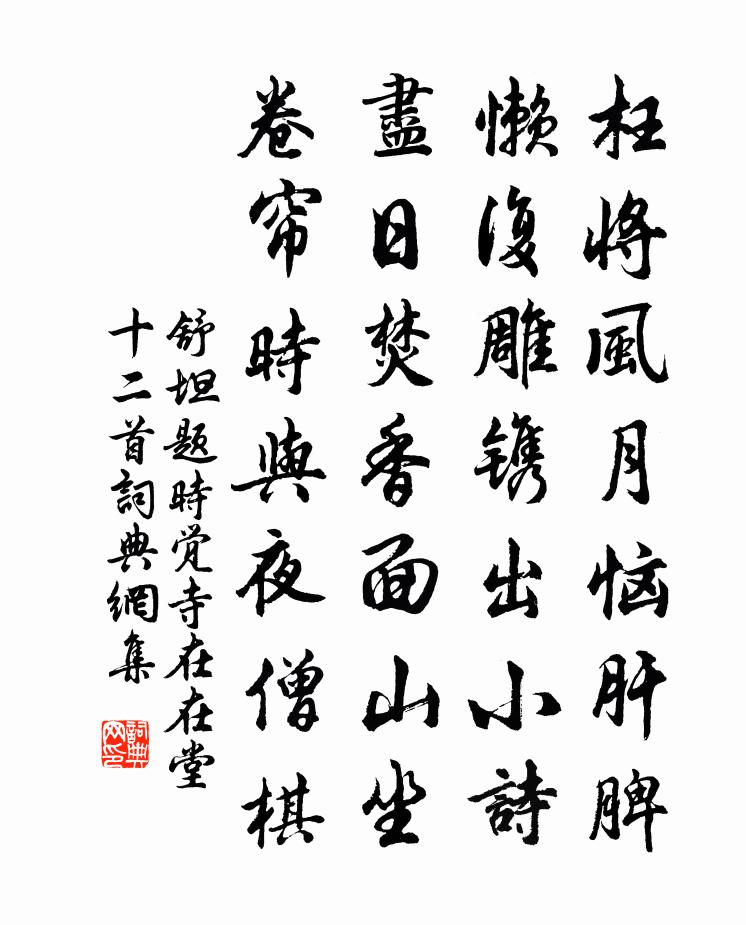 枉将風月恼肝脾
懒復雕镌出小詩
盡日焚香面山坐
卷帘時與夜僧棋
舒坦题時觉寺在在堂
十二首詞典網集
詞典
网印